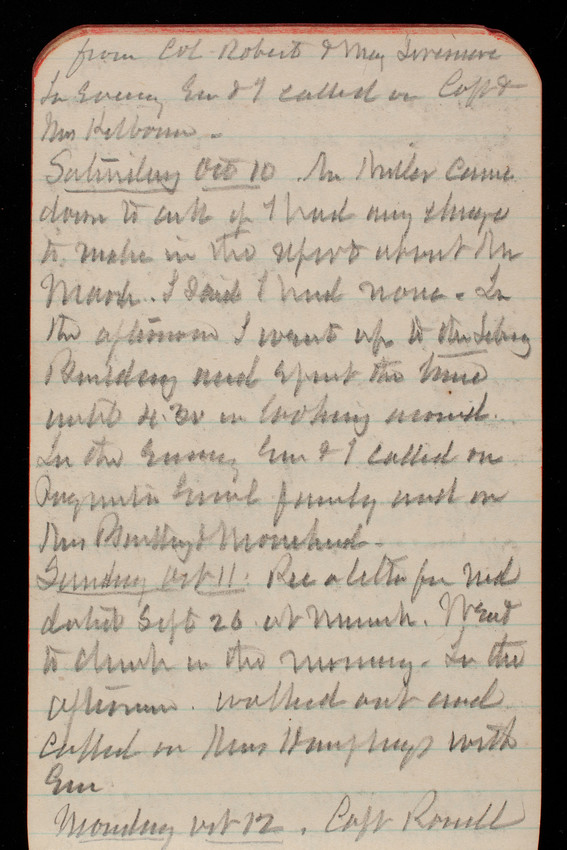 from Col. Robert & May
In Evening Em & I called on Capt &
Mrs Kilbourn.
Saturday Oct 10. Mr Miller came
down to ask if I had any change
to make in the report about the
March. I said I had none. In
the afternoon I went up to the Library
Building and spent the time
until 4.30 in looking around.
In the Evening Em & I called on
family and on
Mrs & Morehead.
Sunday Oct 11. Rec a letter from Ned
dated Sept 26 at Munich. Went
to church in the morning. In the
afternoon walked out and
called on Mrs Humphreys with
Em
Monday Oct 12. Capt Rowell